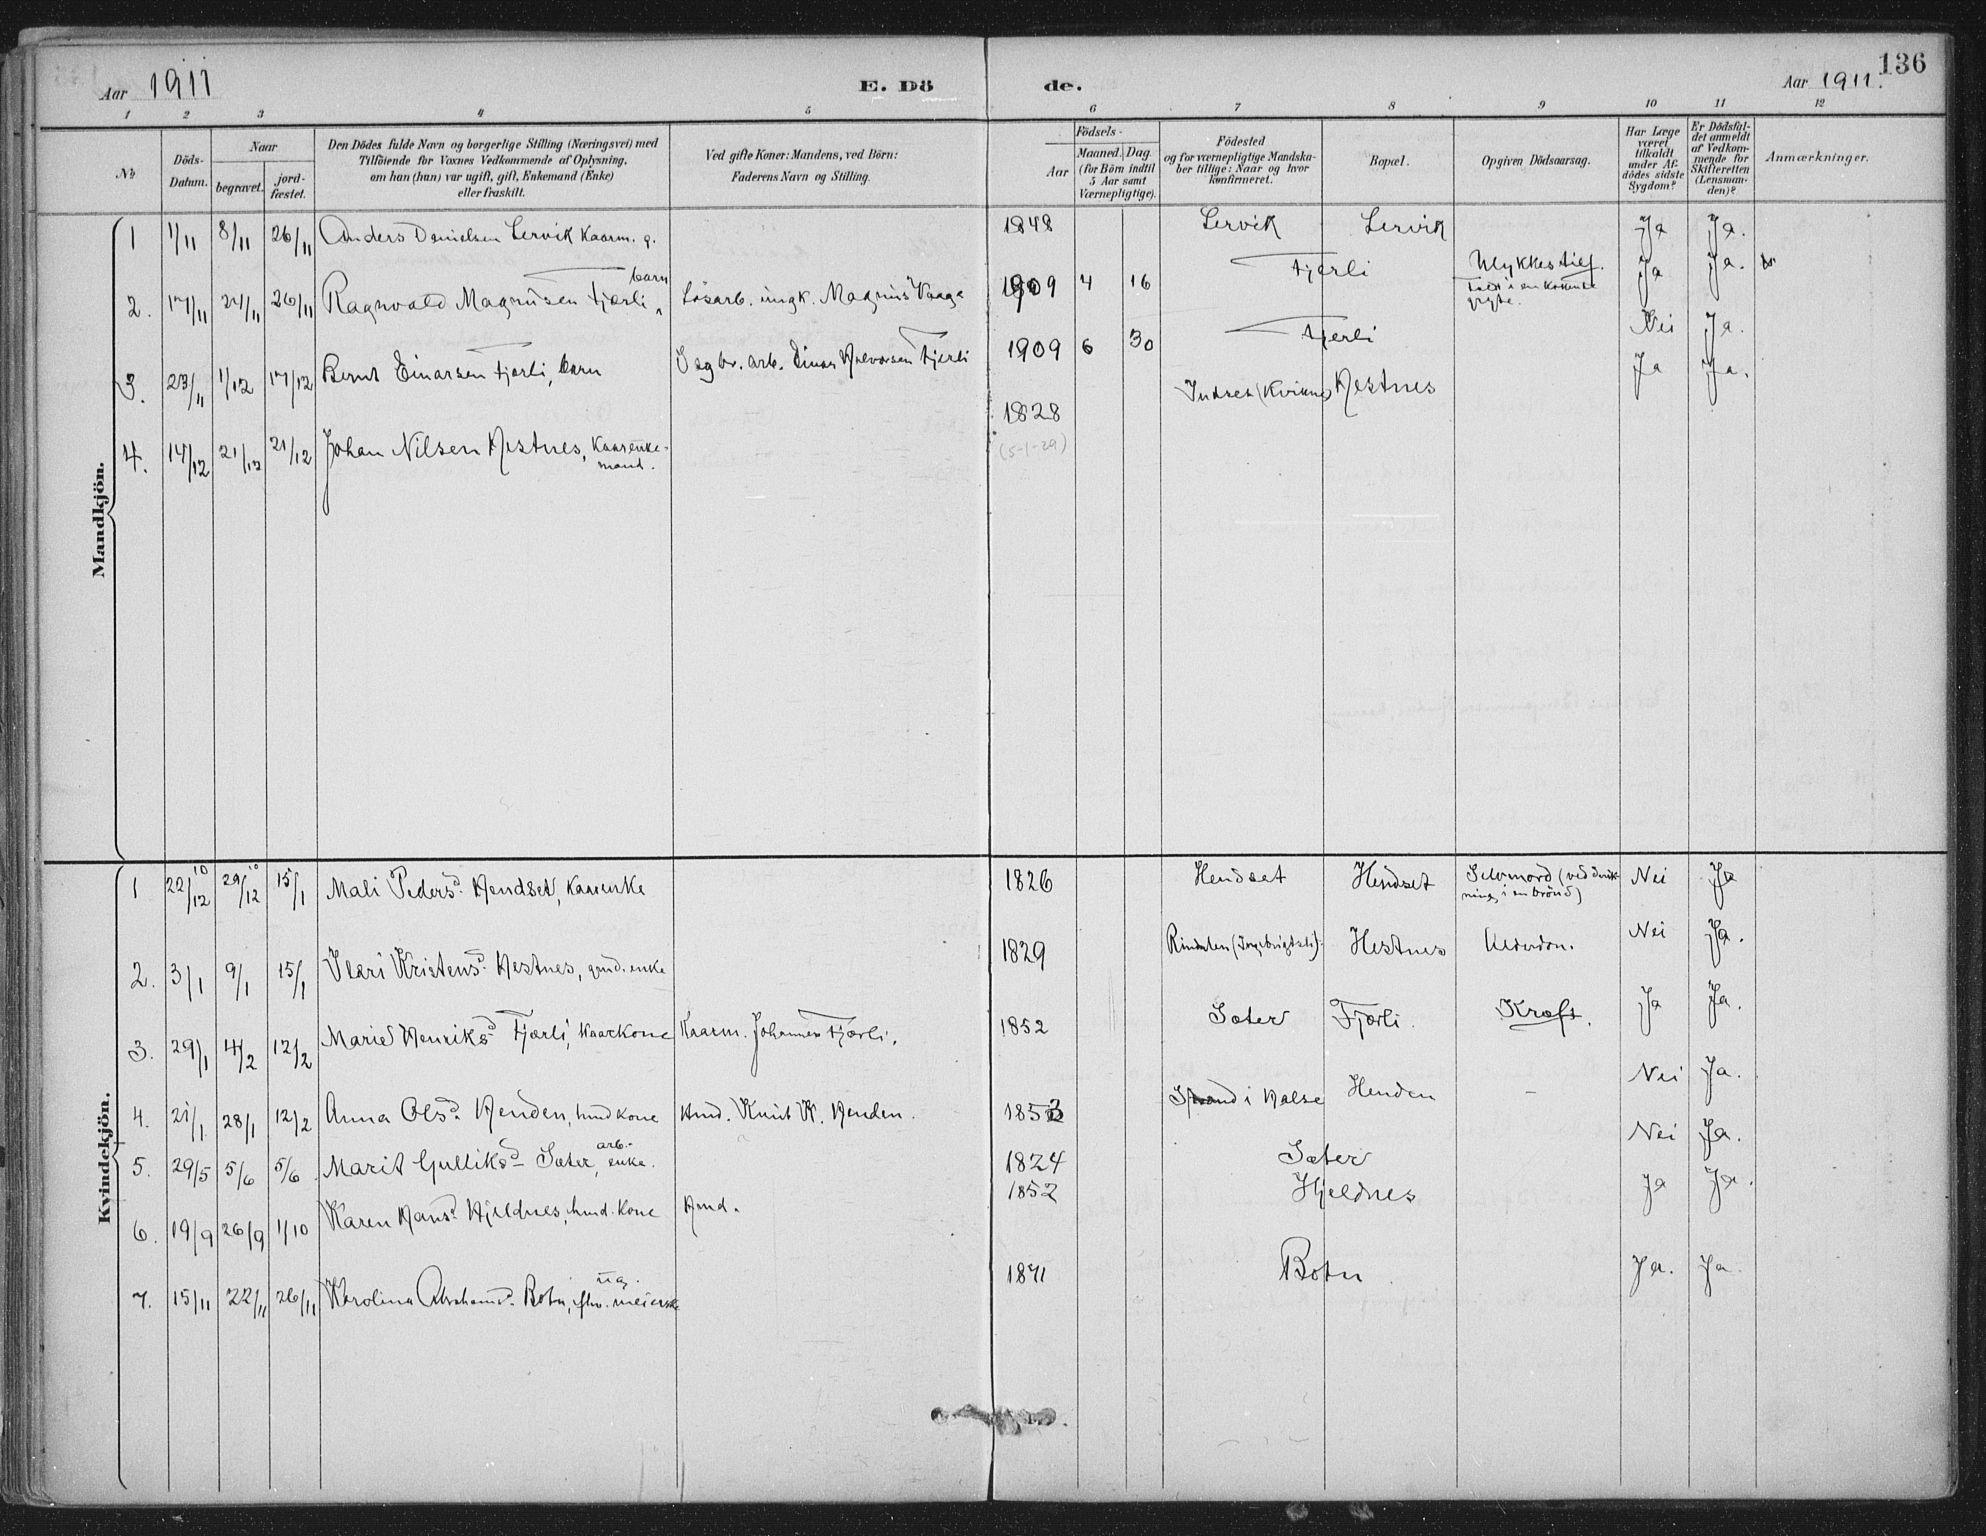 Aar 1911 E. Dö de. Aar 1911. 136
1 2 3 4 5 6 7 8 9 10 11 12
№ Döds-Datum. Naar begravet. jord-fæstet. Den Dödes fulde Navn og borgerlige Stilling (Næringsvei) med Tilföiende for Voxnes Vedkommende af Oplysning, om han (hun) var ugift, gift, Enkemand (Enke) eller fraskilt. Ved gifte Koner: Mandens, ved Börn: Faderens Navn og Stilling. Födsels- Aar Maaned. Dag (for Börn indtil 5 Aar samt Værnepligtige). Födested og for værnepligtige Mandskaber tillige: Naar og hvor konfirmeret. Bopæl. Opgiven Dödsaarsag. Har Læge været tilkaldt under Afdödes sidste Sygdom? Er Dödsfaldet anmeldt af Vedkommende for Skifteretten (Lensmanden)? Anmærkninger.
Mandkjön.
1 1/11 8/11 26/11 Anders Danielsen Lervik Kaarm. g. 1848 Lervik Lervik Ja Ja.
2. 17/11 24/11 26/11 Ragnvald Magnusen Fjærli, barn Lösarb. ungk. Magnus Vaage 1909 4 16 Fjerli Ulykkestilf. Faldt i en kokende gryte. Ja Ja.
3. 23/11 1/12 17/12 Bernt Einarsen Fjærli, barn Sagbr. arb. Einar Halvorsen Fjerli 1909 6 30 Fjerli Nei Ja.
4. 14/12 21/12 21/12 Johan Nilsen Hestnes, Kaarenke-mand. 1828 (5-1-29) Indset (Kvikne) Hestnes Ja Ja.
Kvindekjön.
1 22/12 10 29/12 10 15/1 Mali Pedersd. Hendset, Kaarenke 1826 Hendset Hendset Selvmord (ved drukning i en brönd) Nei Ja
2. 3/1 9/1 15/1 Kristensd. Hestnes, grd. enke 1829 Rindalen Hestnes Alderdom. Nei Ja.
3. 29/1 4/2 12/2 Marie Henriksd Fjærli, Kaarkone Kaarm. Johannes Fjærli. 1852 Sæter Fjærli. Kræft. Ja Ja.
4. 21/1 28/1 12/2 Anna Olsd. Henden, hmd kone Hmd. Knut K. Henden. 1853 Strand i Halse Henden - Nei Ja.
5. 29/5 5/6 5/6 Marit Gulliksd Sæter, arb. enke. 1824 Sæter Nei Ja.
6. 19/9 26/9 1/10 Karen Hansd. Hjeldnes, hmd. kone Hmd. 1852 Hjeldnes Ja Ja.
7. 15/11 22/11 26/11 Karolina Abrahamsd. Botn, fhv. meierske ug. 1871 Botn Ja. Ja.